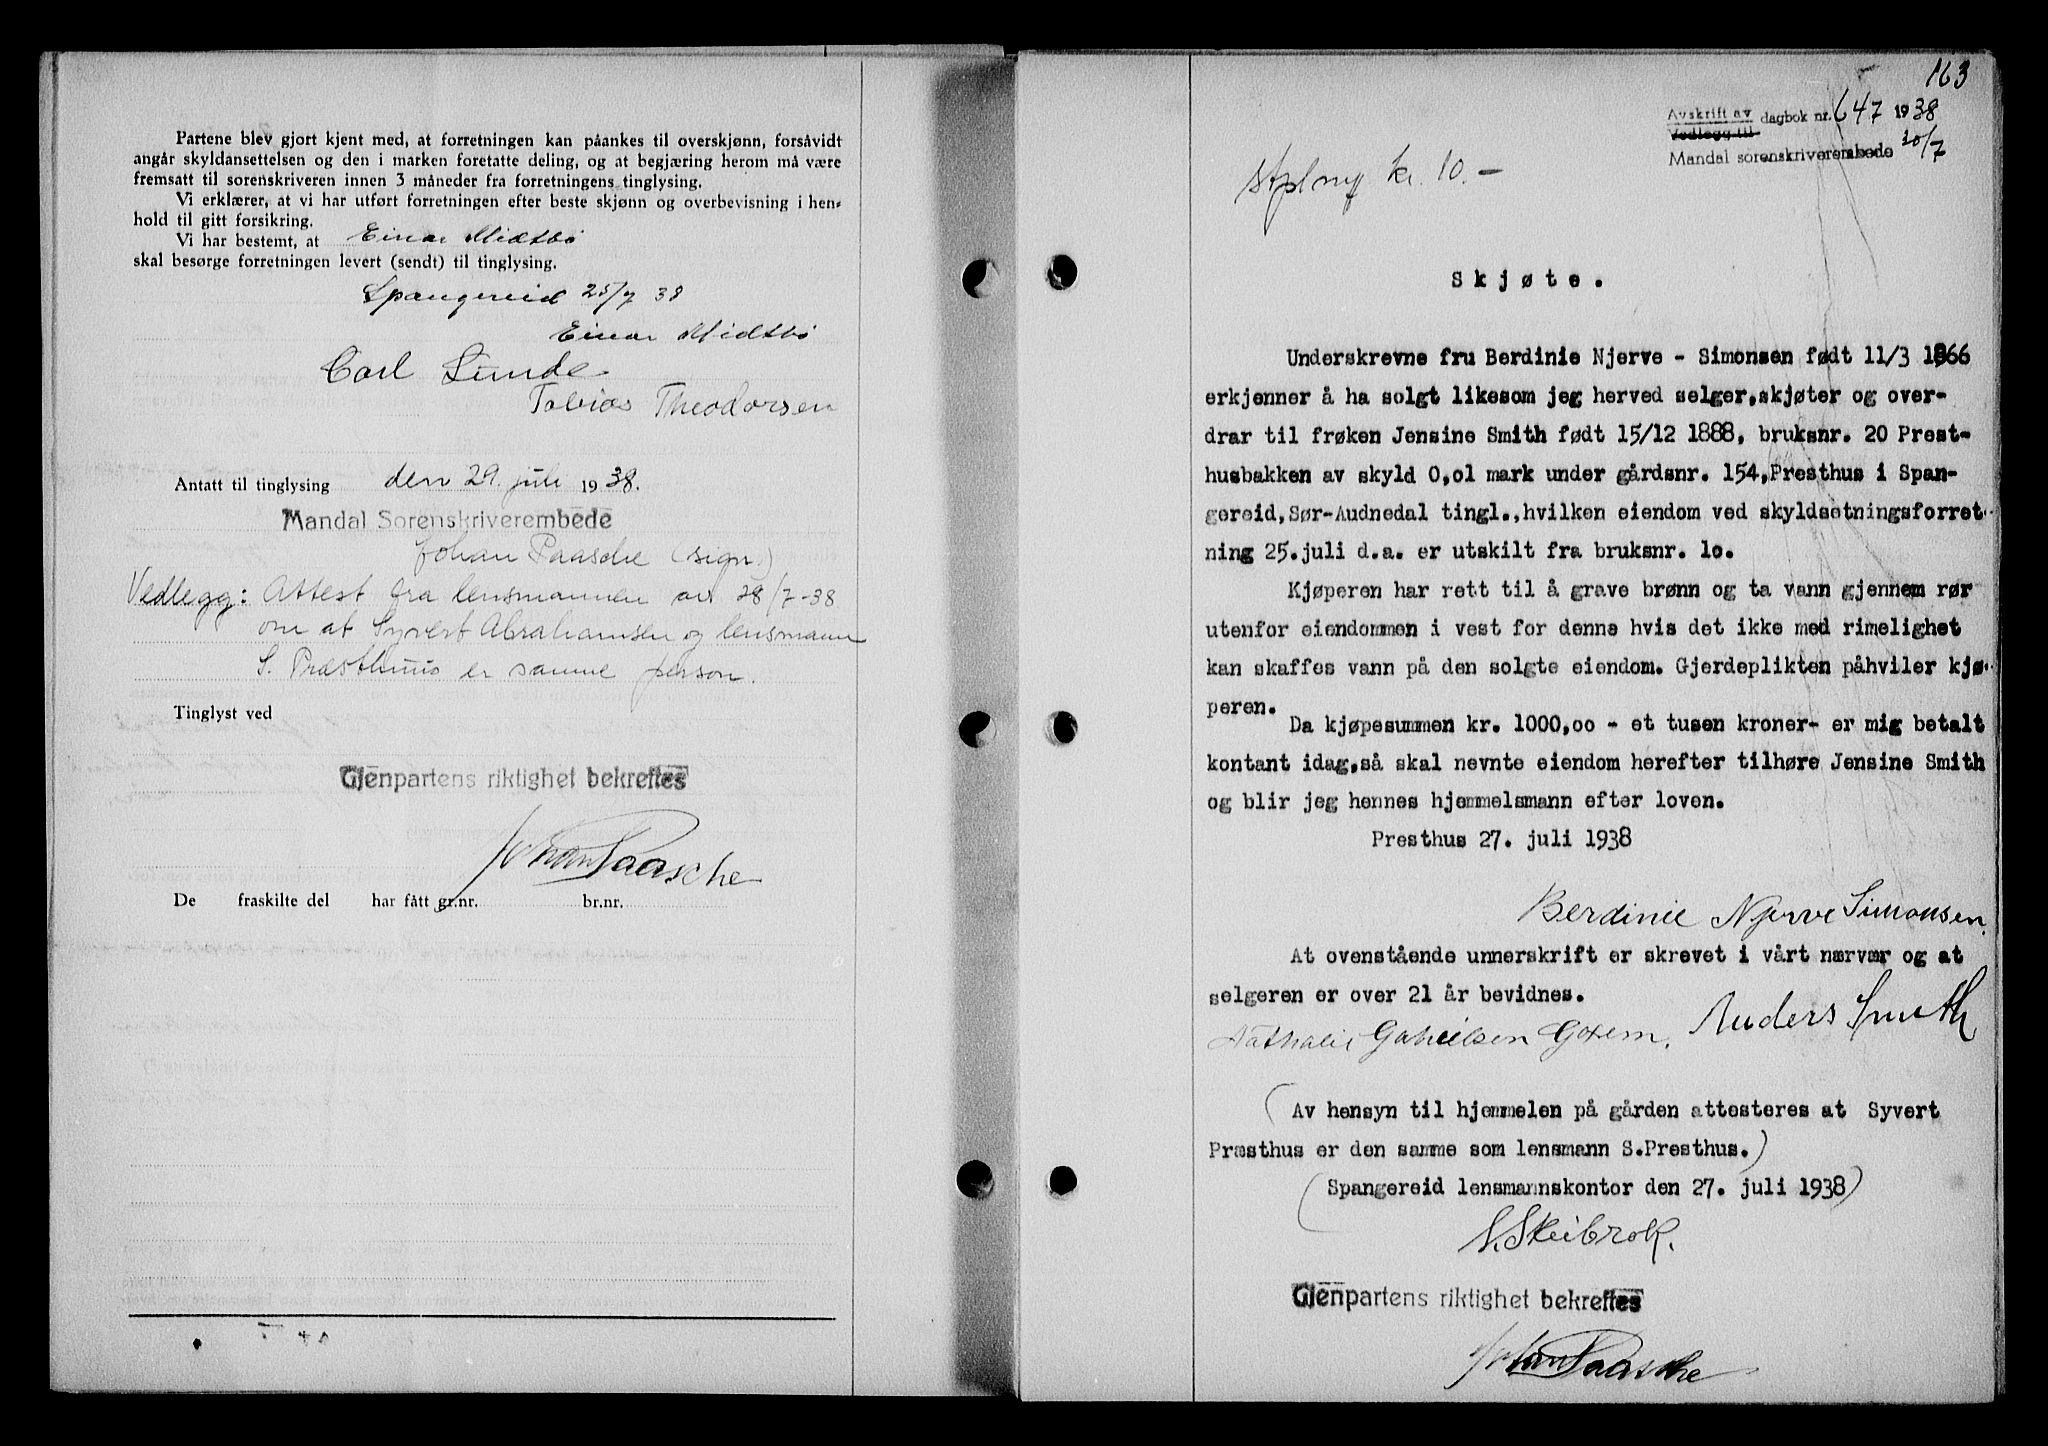 Partene blev gjort kjent med, at forretningen kan påankes til overskjønn, forsåvidt
angår skyldansettelsen og den i marken foretatte deling, og at begjæring herom må være
fremsatt til sorenskriveren innen 3 måneder fra forretningens tinglysing.
Vi erklærer, at vi har utført forretningen efter beste skjønn og overbevisning i hen-
hold til gitt forsikring.
Vi har bestemt, at Einar Midtbö
skal besørge forretningen levert (sendt) til tinglysing.
Spangereid 25/7 38
Einar Midtbö
Carl Lunde
Tobias Theodorsen
Antatt til tinglysing den 29. juli 1938.
Mandal Sorenskriverembede
Johan Paasche (sign.)
Vedlegg: Attest fra lensmannen av 28/7-38
om at Syvert Abrahamsen og lensmann
S. Præsthuus er samme person.
Tinglyst ved
Gjenpartens riktighet bekreftes
Johan Paasche
De fraskilte del har fått gr.nr. br.nr.
163
Avskrift av dagbok nr. 647 1938
Vedlegg til
Mandal sorenskriverembede 30/7
kr. 10.-
Skjøte.
Underskrevne fru Berdinie Njerve - Simonsen født 11/3 1866
erkjenner å ha solgt likesom jeg herved selger,skjøter og over-
drar til frøken Jensine Smith født 15/12 1888, bruksnr. 20 Prest-
husbakken av skyld 0,01 mark under gårdsnr. 154,Presthus i Span-
gereid,Sør-Audnedal tingl.,hvilken eiendom ved skyldsetningsforret-
ning 25.juli d.a. er utskilt fra bruksnr. lo.
Kjøperen har rett til å grave brønn og ta vann gjennem rør
utenfor eiendommen i vest for denne hvis det ikke med rimelighet
kan skaffes vann på den solgte eiendom. Gjerdeplikten påhviler kjø-
peren.
Da kjøpesummen kr. 1000,oo - et tusen kroner- er mig betalt
kontant idag,så skal nevnte eiendom herefter tilhøre Jensine Smith
og blir jeg hennes hjemmelsmann efter loven.
Presthus 27. juli 1938
Berdinie Njerve Simonsen.
At ovenstående unnerskrift er skrevet i vårt nærvær og at
selgeren er over 21 år bevidnes.
Anders Smith
Nathalie Gabrielsen Goxem.
(Av hensyn til hjemmelen på gården attesteres at Syvert
Præsthus er den samme som lensmann S.Presthus.)
(Spangereid lensmannskontor den 27. juli 1938)
S. Skeibrok.
Gjenpartens riktighet bekreftes
Johan Paasche